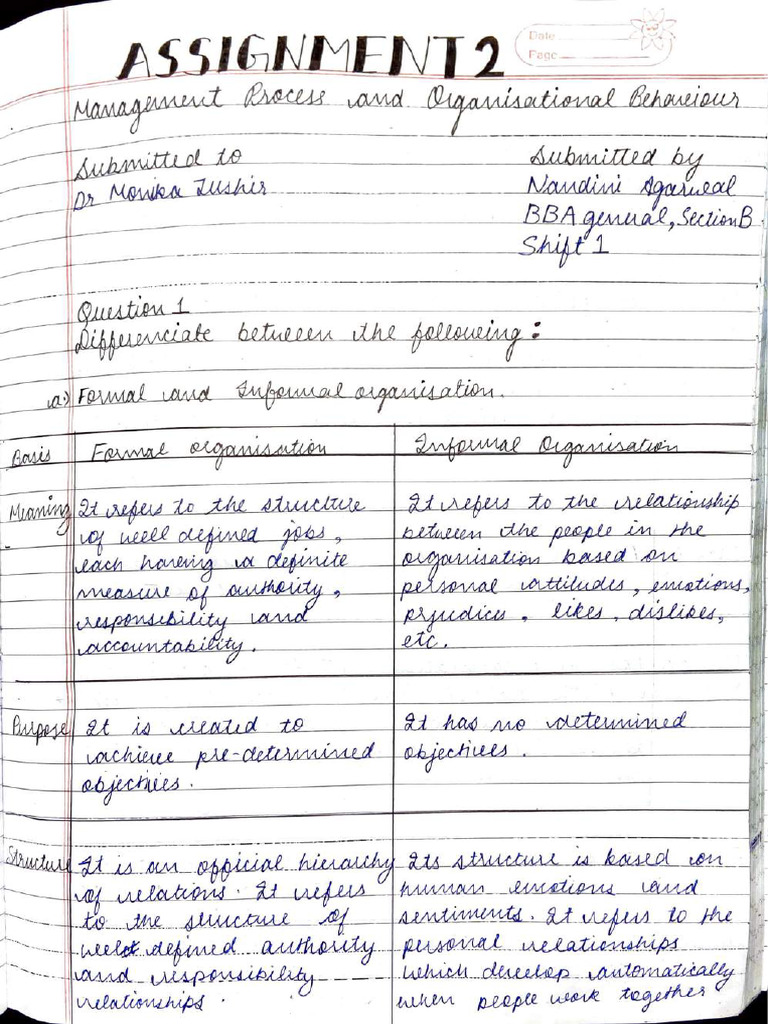 ASSIGNMENT 2
Date
Page
Management Process and Organisational Behaveiour
Submitted to
Dr Monika Tushir
Submitted by
Nandini Agarwal
BBA general, Section B
Shift 1
Question 1
Differenciate between the following:
a) Formal and Informal organisation.
Basis
Formal organisation
Informal Organisation
Meaning
It refers to the structure
of well defined jobs,
each having a definite
measure of authority,
responsibility and
accountability.
It refers to the relationship
between the people in the
organisation based on
personal attitudes, emotions,
prjudices, likes, dislikes,
etc.
Purpose
It is created to
achieve pre-determined
objectives.
It has no determined
objectives.
Structure
It is an official hierarchy
of relations. It refers
to the structure of
well defined authority
and responsibility
relationships.
Its structure is based on
human emotions and
sentiments. It refers to the
personal relationships
which develop automatically
when people work together